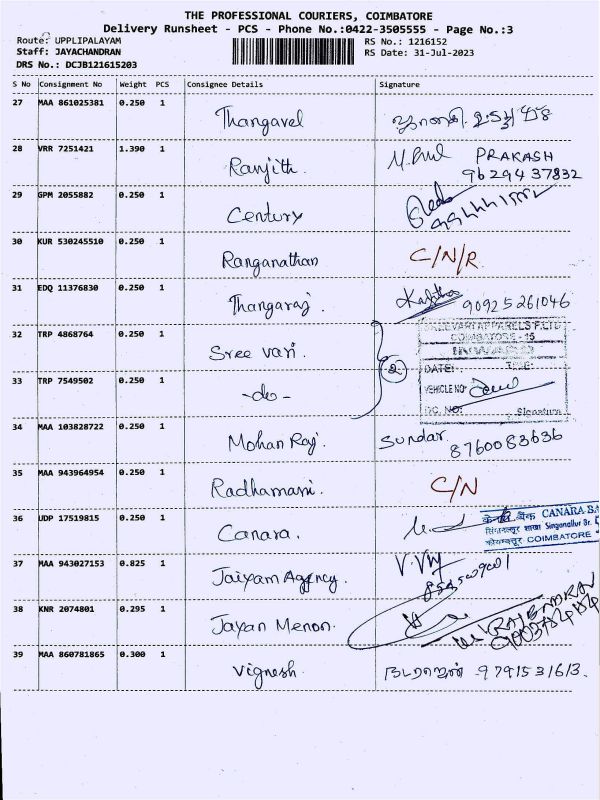 THE PROFESSIONAL COURIERS, COIMBATORE
Delivery Runsheet - PCS - Phone No.:0422-3505555 - Page No.:3
Route: UPPLIPALAYAM
RS No.: 1216152
Staff: JAYACHANDRAN
RS Date: 31-Jul-2023
DRS No.: DCJB121615203
S No Consignment No Weight PCS Consignee Details Signature
27 MAA 861025381 0.250 1 Thangavel
28 VRR 7251421 1.390 1 Ranjith. PRAKASH
9629437832
29 GPM 2055882 0.250 1 Century
30 KUR 530245510 0.250 1 Ranganathan C/N/R
31 EDQ 11376830 0.250 1 Thangaraj. 90925261046
32 TRP 4868764 0.250 1 Sree vari.
SREE VARI APPARELS P. LTD
COIMBATORE - 15
INWARD
33 TRP 7549502 0.250 1 -do- 2
DATE: TIME:
VEHICLE NO
DC. NO: Signature
34 MAA 103828722 0.250 1 Mohan Raj. Sundar
8760083636
35 MAA 943964954 0.250 1 Radhamani. C/N
36 UDP 17519815 0.250 1 Canara.
बैंक CANARA
शाखा Singanallur Br.
कोयम्बत्तूर COIMBATORE
37 MAA 943027153 0.825 1 Jaiyam Agency.
38 KNR 2074801 0.295 1 Jayan Menon. RAJENDRAN
39 MAA 860781865 0.300 1 Vignesh. நடராஜன் 9791531613.